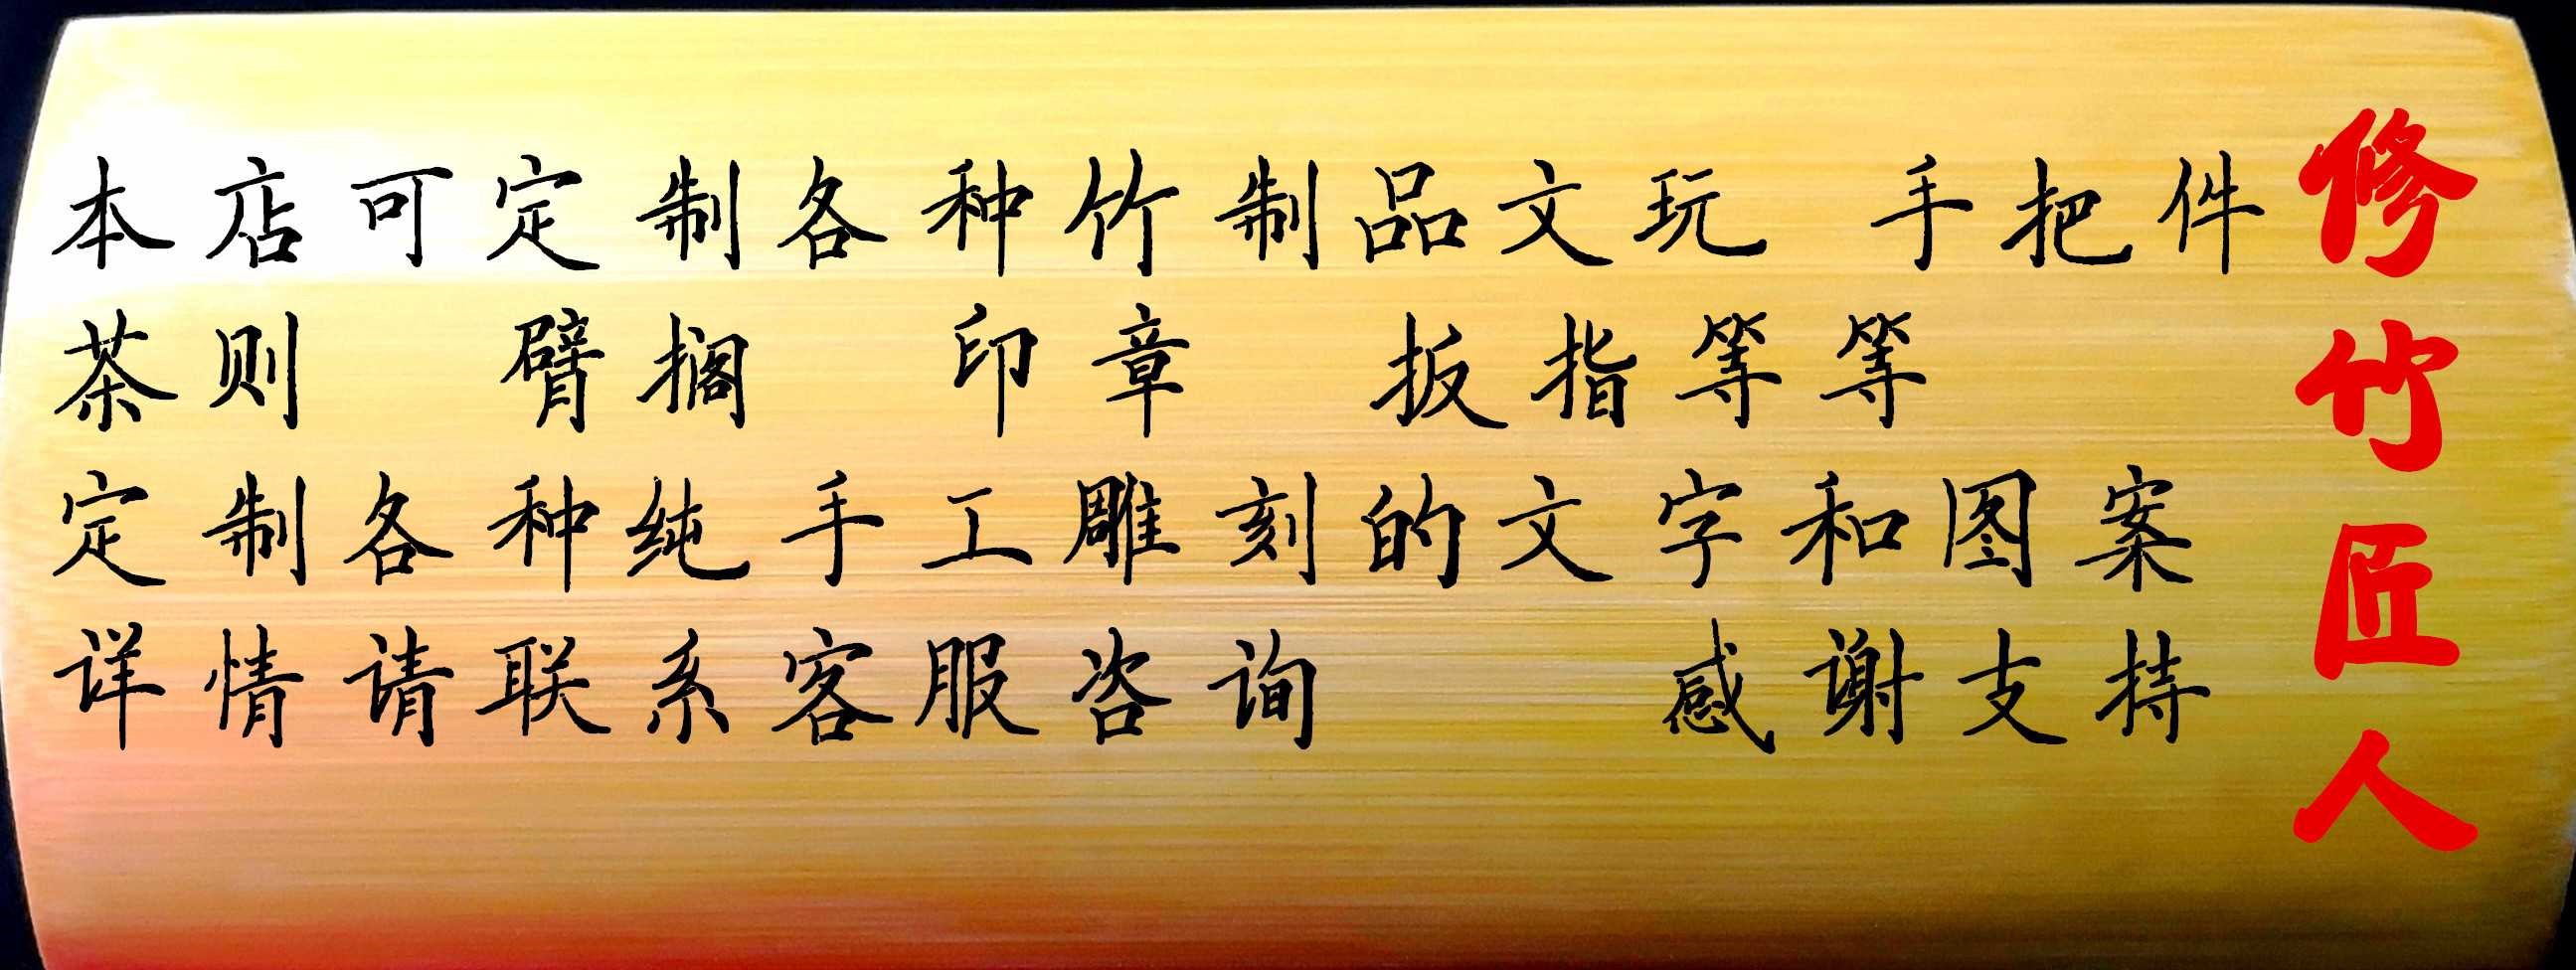 本店可定制各种竹制品文玩 手把件
茶则 臂搁 印章 扳指等等
定制各种纯手工雕刻的文字和图案
详情请联系客服咨询 感谢支持
修竹匠人